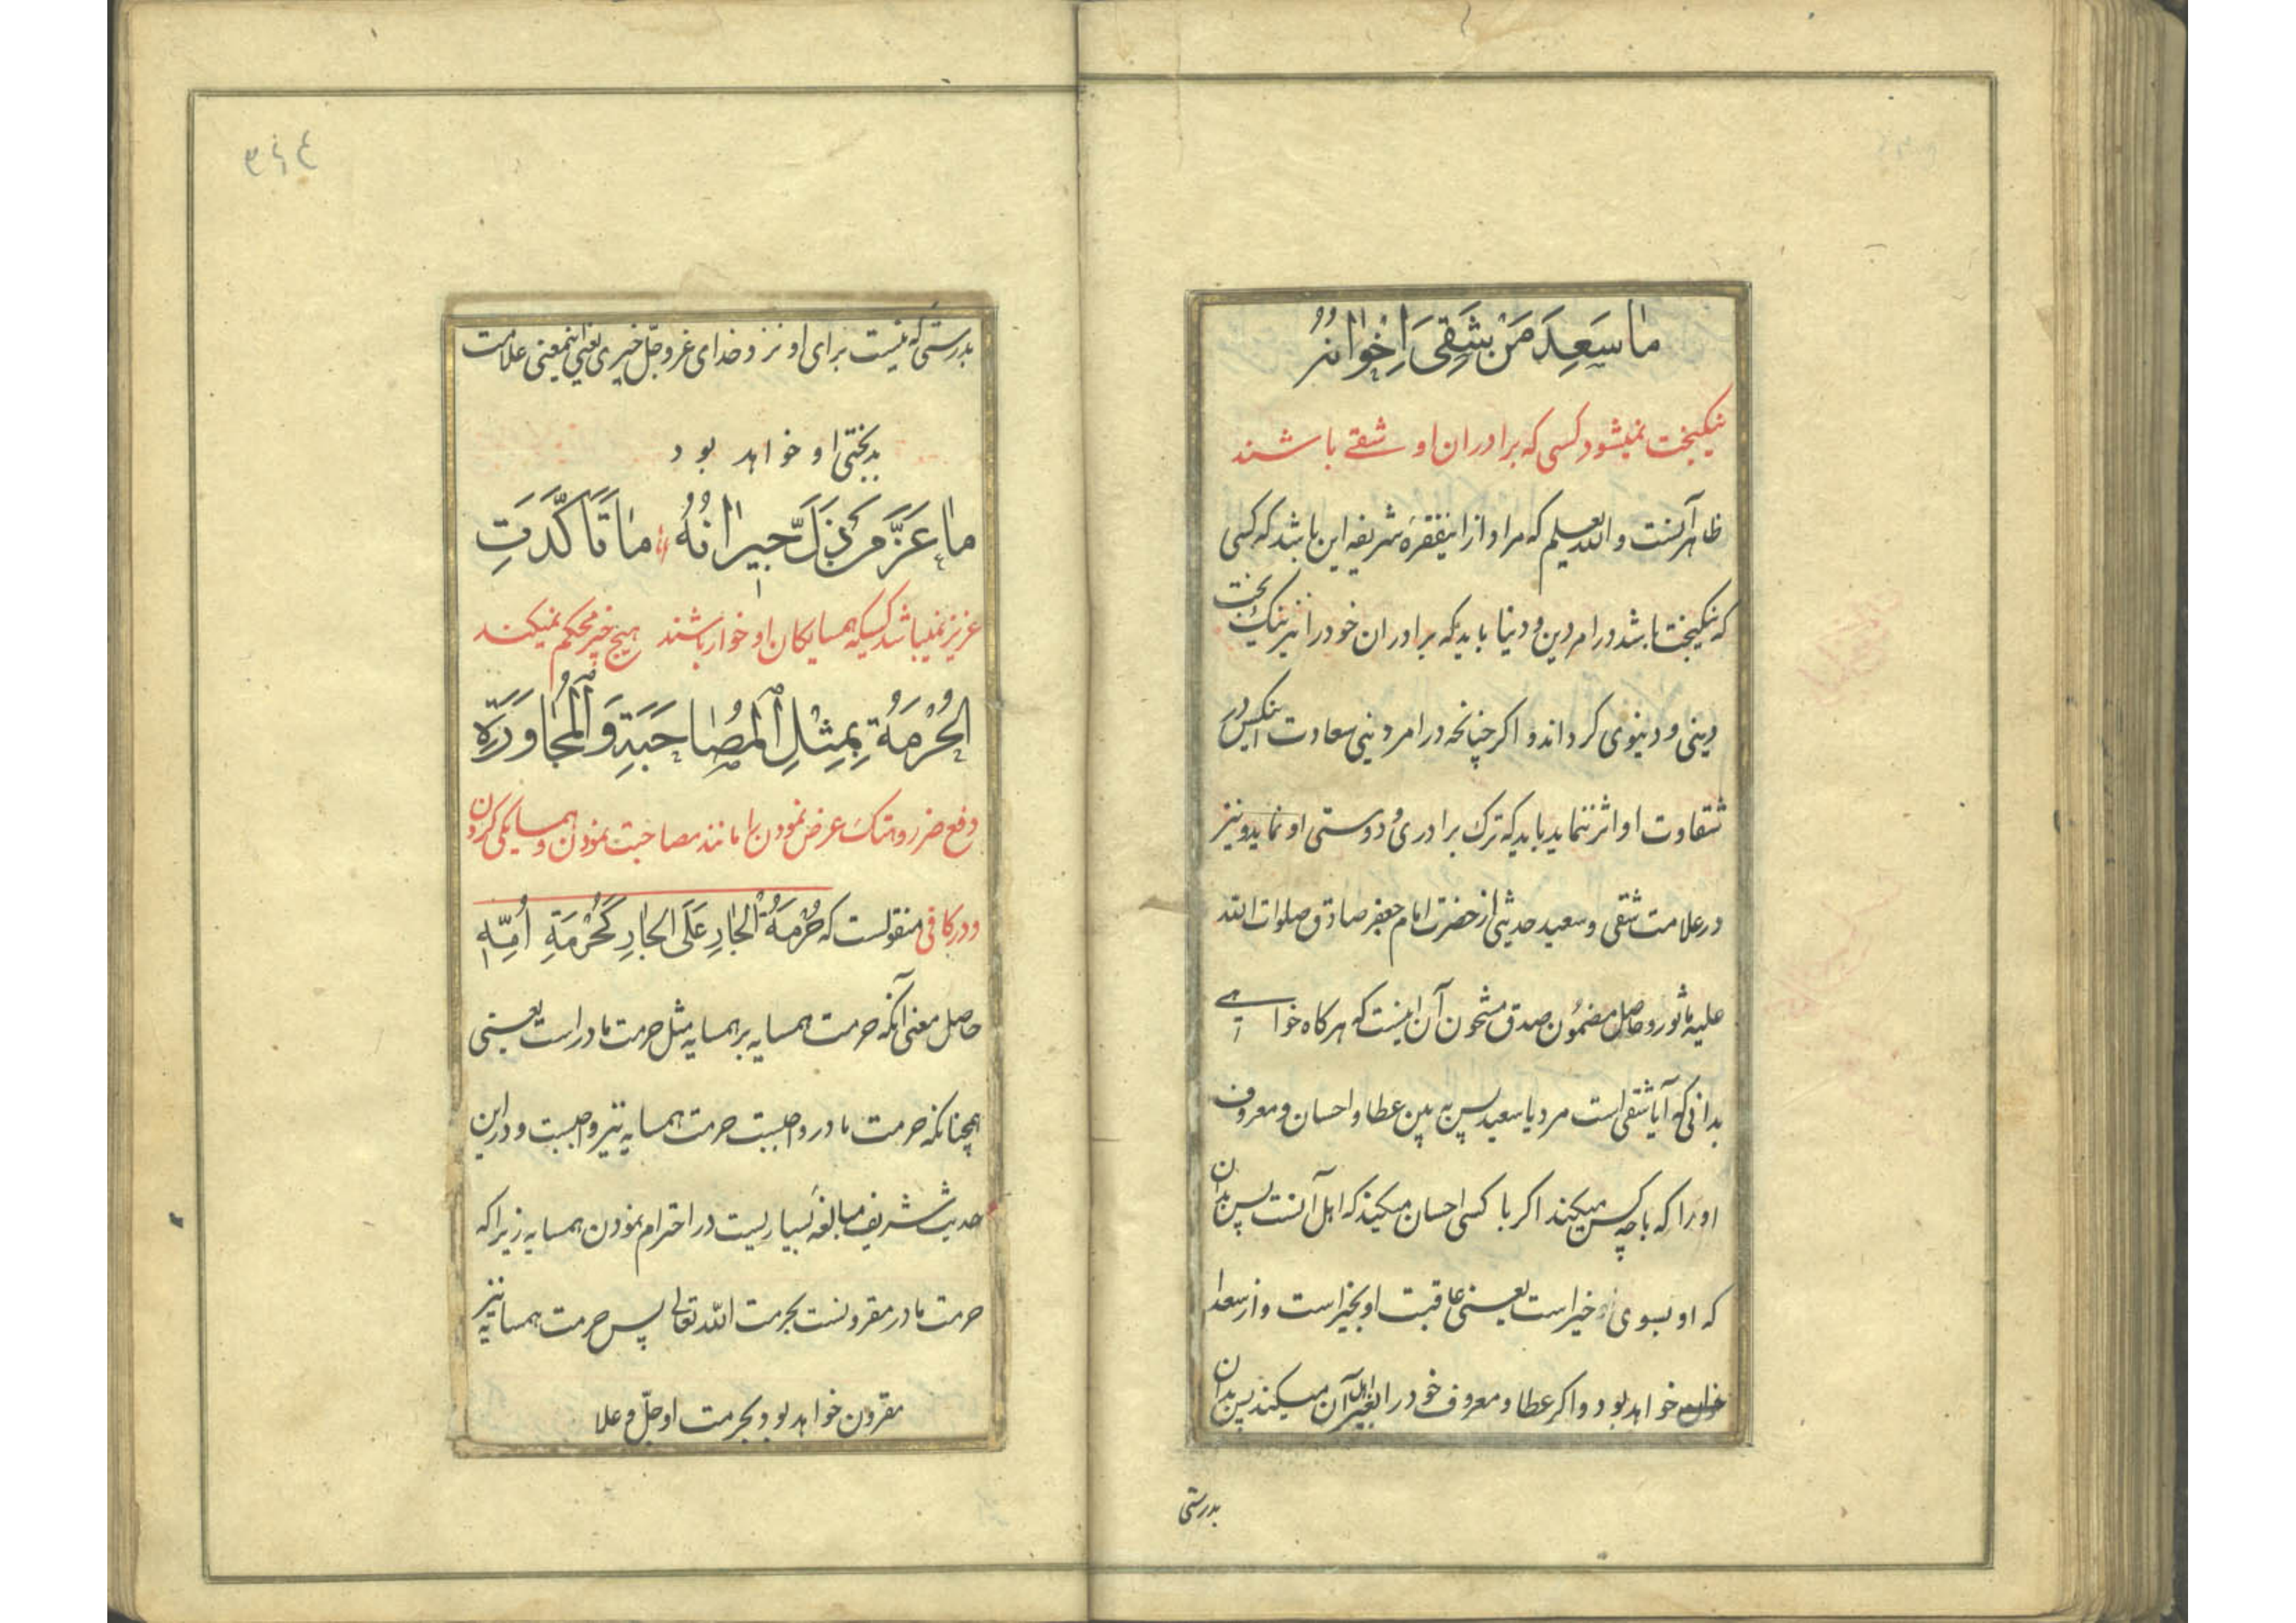 مٰا سَعِدَ مَنْ شَقِیَ اِخْوٰانُهُ
نیکبخت نمیشود کسی که برادران او شقے باشند
ظاهر آنست والله یعلم که مراد از اینفقرهٔ شریفه این باشد که کسی
که نیکبخت باشد در امر دین و دنیا باید که برادران خود را نیز نیک بخت
دینی و دنیوی گرداند و اگر چنانچه در امر دینی سعادت اینکس در
شقاوت او اثر ننماید باید که ترک برادری و دوستی او نماید و نیز
در علامت شقی و سعید حدیثی از حضرت امام جعفر صادق صلوات الله
علیه ماثور و حاصل مضمون صدق مشحون آن اینست که هر کاه خواهے
بدانی که آیا شقی است مرد یا سعید پس به بین عطا و احسان و معروف
او را که با چه کس میکند اکر با کسی احسان میکند که اهل آنست پس بدان
که او بسوی خیر است یعنی عاقبت او بخیر است و از سعدا
خواهد بود و اکر عطا و معروف خود را بغیر اهل آن میکند پس بدان
بدرستی
٣٤٤
بدرستی که نیست برای او نزد خدای عزوجل خیری یعنی اینمعنی علامت
بدبختی او خواهد بود
مٰا عَزَّ مَنْ ذَلَّ جیرٰانُهُ مٰا تَأَکَّدَتِ
عزیز نمیباشد کسیکه همسایکان او خوار باشند هیچ چیز محکم نمیکند
الْحُرْمَةُ بِمِثْلِ الْمُصٰاحَبَةِ وَ الْمُجٰاوَرَةِ
دفع ضرر و هتک عرض نمودن را مانند مصاحبت نمودن و همسایکی کردن
و در کافی منقولست که حُرْمَةُ الْجٰارِ عَلَی الْجٰارِ کَحُرْمَةِ اُمِّهِ
حاصل معنی آنکه حرمت همسایه بر همسایه مثل حرمت مادر است یعنی
همچنانکه حرمت مادر واجبست حرمت همسایه نیز واجبست و در این
حدیث شریف مبالغهٔ بسیاریست در احترام نمودن همسایه زیرا که
حرمت مادر مقرونست بحرمت الله تعالی پس حرمت همسایه نیز
مقرون خواهد بود بحرمت او جلّ و علا